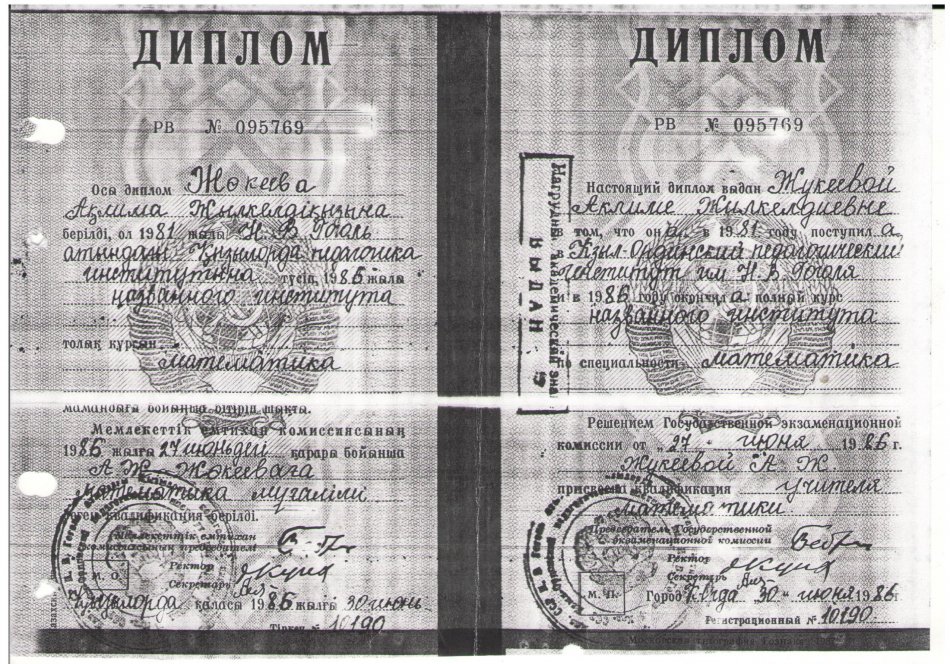 ДИПЛОМ
РВ № 095769
Осы диплом Жокеева
Ақлима Жылкелдіқызына
берілді, ол 1981 жылы Н. В. Гоголь
атындағы Қызылорда педогогика
институтына түсіп, 1986 жылы
названного института
толық курсын
математика
мамандығы бойынша бітіріп шықты.
Мемлекеттік емтихан комиссиясының
1986 жылғы 27 июньдегі қарары бойынша
А. Ж. Жокееваға
математика мұғалімі
деген квалификация берілді.
Мемлекеттік емтихан
комиссиясының председателі
Ректор
Секретарь
М. О.
Қызылорда қаласы 1986 жылғы 30 июнь
Тіркеу № 10190
ДИПЛОМ
РВ № 095769
Настоящий диплом выдан Жукеевой
Аклиме Жилкелдиевне
в том, что она в 1981 году поступила
в Кзыл-Ординский педагогический
институт им Н. В. Гоголя
и в 1986 году окончила полный курс
названного института
по специальности математика
Решением Государственной экзаменационной
комиссии от „27“ июня 1986 г.
Жукеевой А. Ж.
присвоена квалификация учителя
математики
Председатель Государственной
экзаменационной комиссии
Ректор
Секретарь
М. П.
Город „30“ июня 1986
Регистрационный № 10190
Московская типография Гознака
Нагрудный Академический зна
ВЫДАН